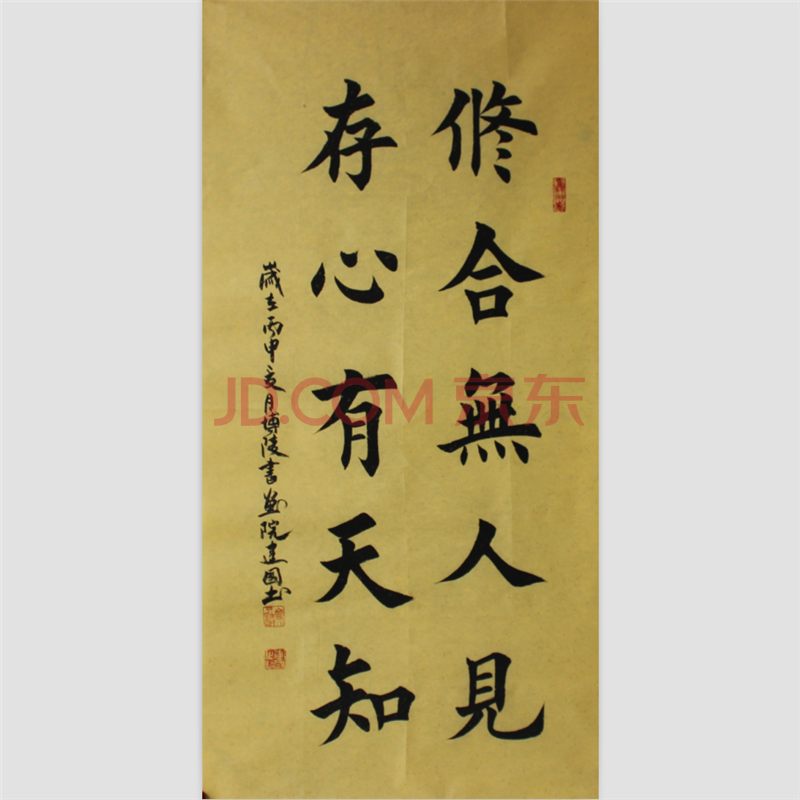 修合無人見
存心有天知
歲在丙申夏月博陵書画院建國书
JD.COM 京东